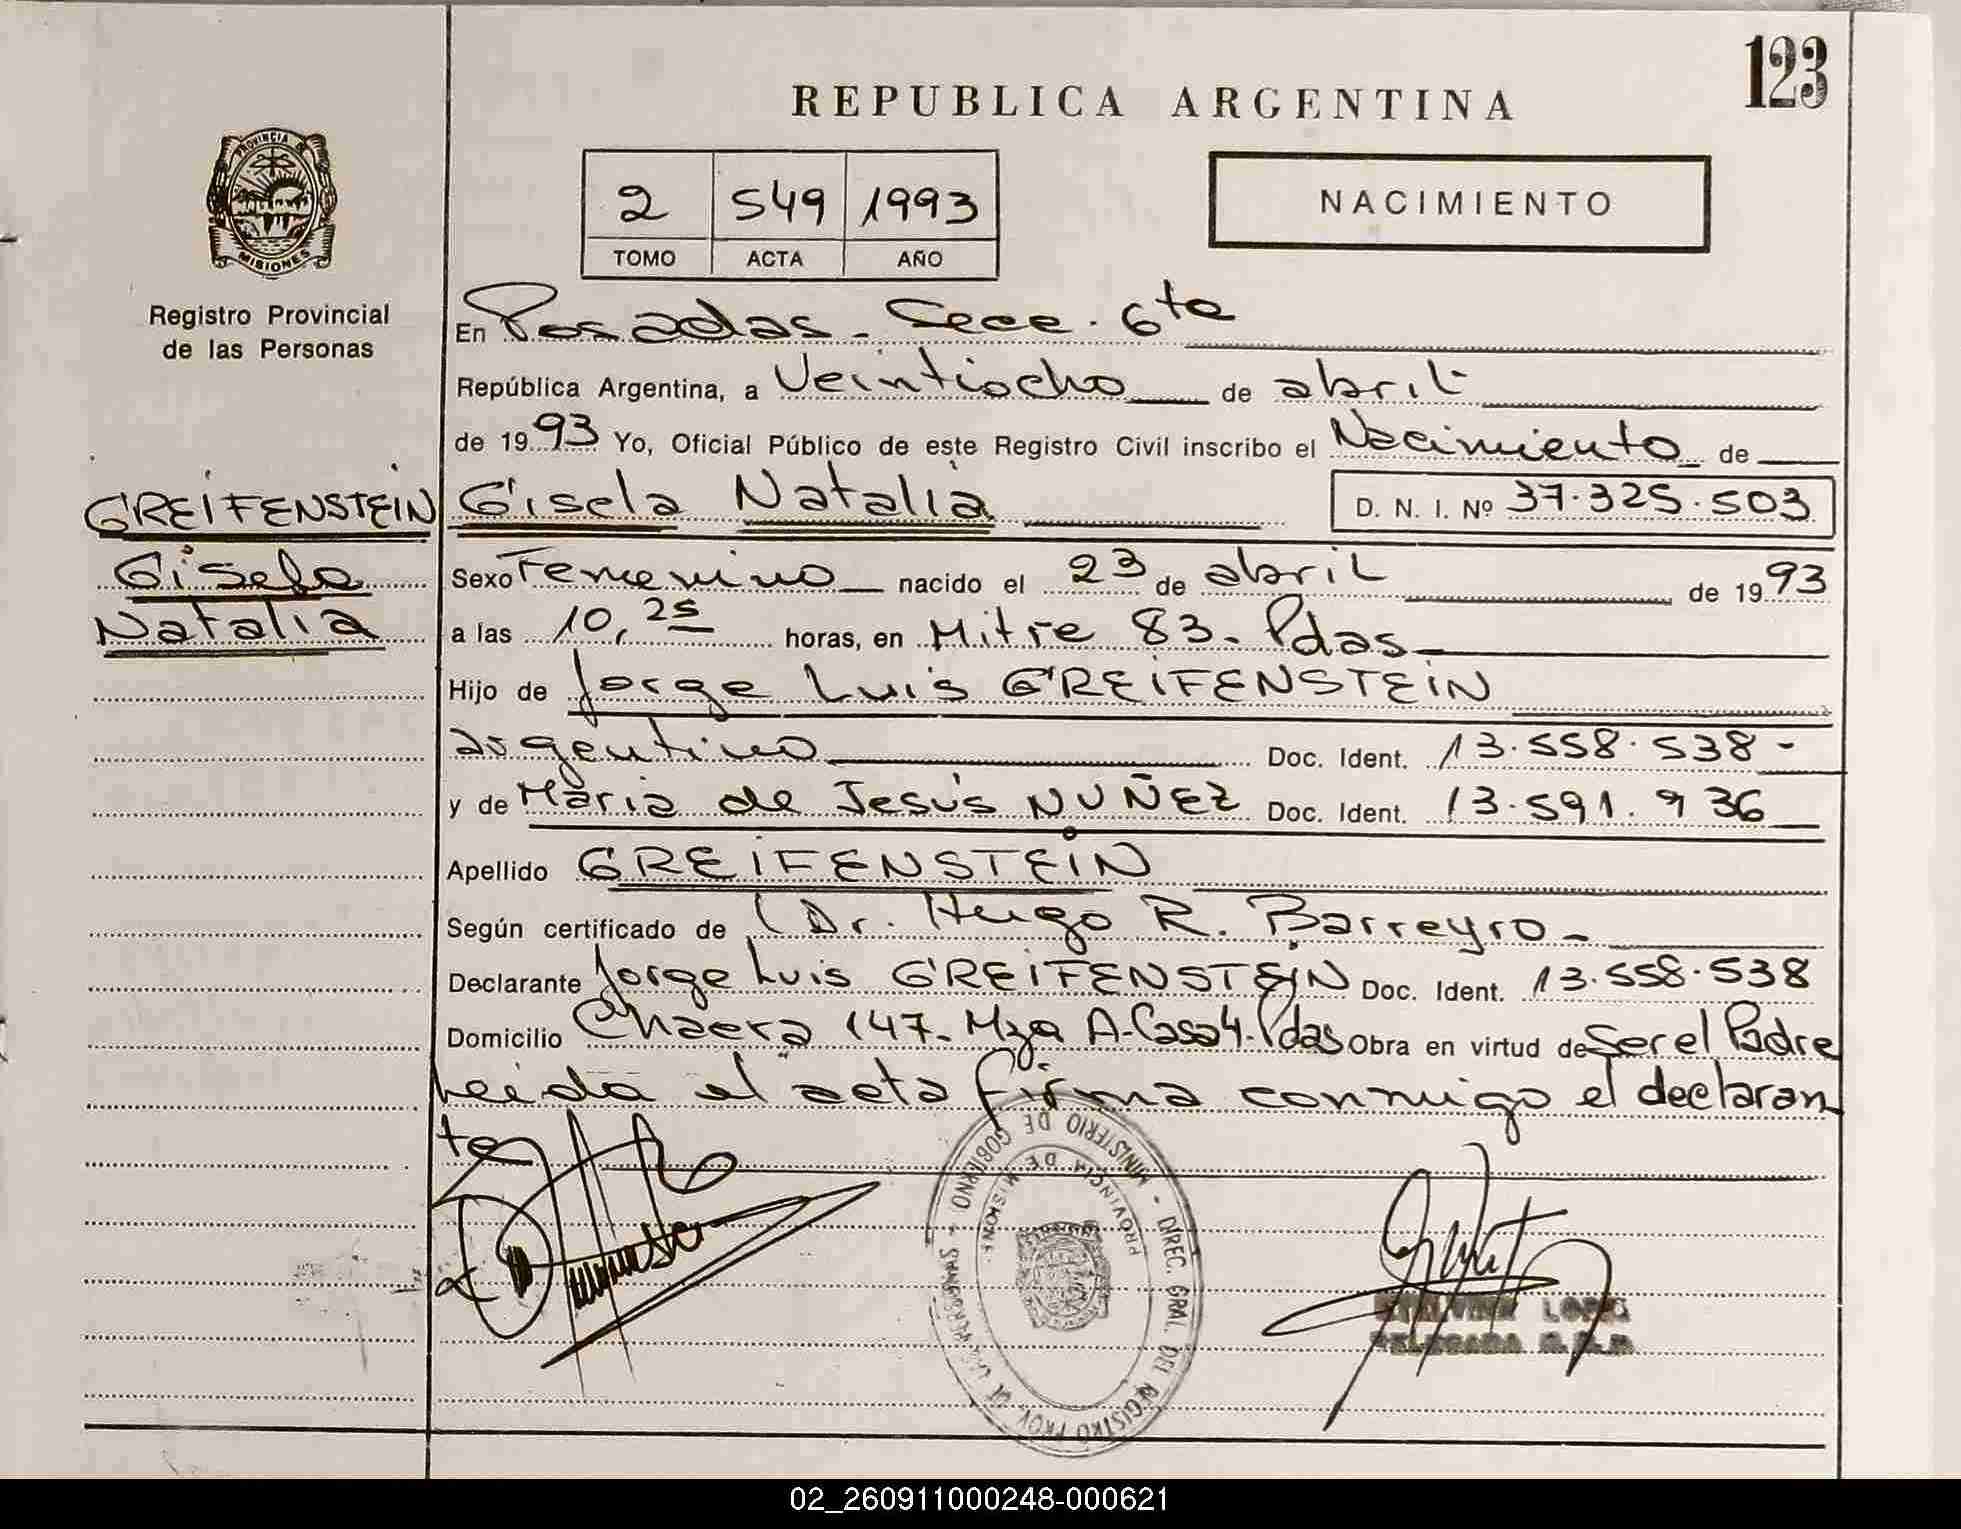 123
REPUBLICA ARGENTINA
PROVINCIA DE
MISIONES
Registro Provincial
de las Personas
2 549 1993
TOMO ACTA AÑO
NACIMIENTO
En Posadas - Secc. 6ta
República Argentina, a Veintiocho de abril
de 1993 Yo, Oficial Público de este Registro Civil inscribo el Nacimiento de
GREIFENSTEIN Gisela Natalia D. N. I. Nº 37.325.503
Gisela
Natalia
Sexo Femenino nacido el 23 de abril de 1993
a las 10,25 horas, en Mitre 83. Pdas
Hijo de Jorge Luis GREIFENSTEIN
argentino Doc. Ident. 13.558.538-
y de María de Jesús NUÑEZ Doc. Ident. 13.591.936
Apellido GREIFENSTEIN
Según certificado de Dr. Hugo R. Barreyro-
Declarante Jorge Luis GREIFENSTEIN Doc. Ident. 13.558.538
Domicilio Chacra 147- Mza A-Casa 4-Pdas Obra en virtud de Ser el Padre
Leida el acta firma conmigo el declaran
te
MINISTERIO DE GOBIERNO - DIREC. GRAL. DEL REGISTRO PROV. DE LAS PERSONAS
PROVINCIA DE MISIONES
LOPEZ
DELEGADA R.P.P.
02_260911000248-000621